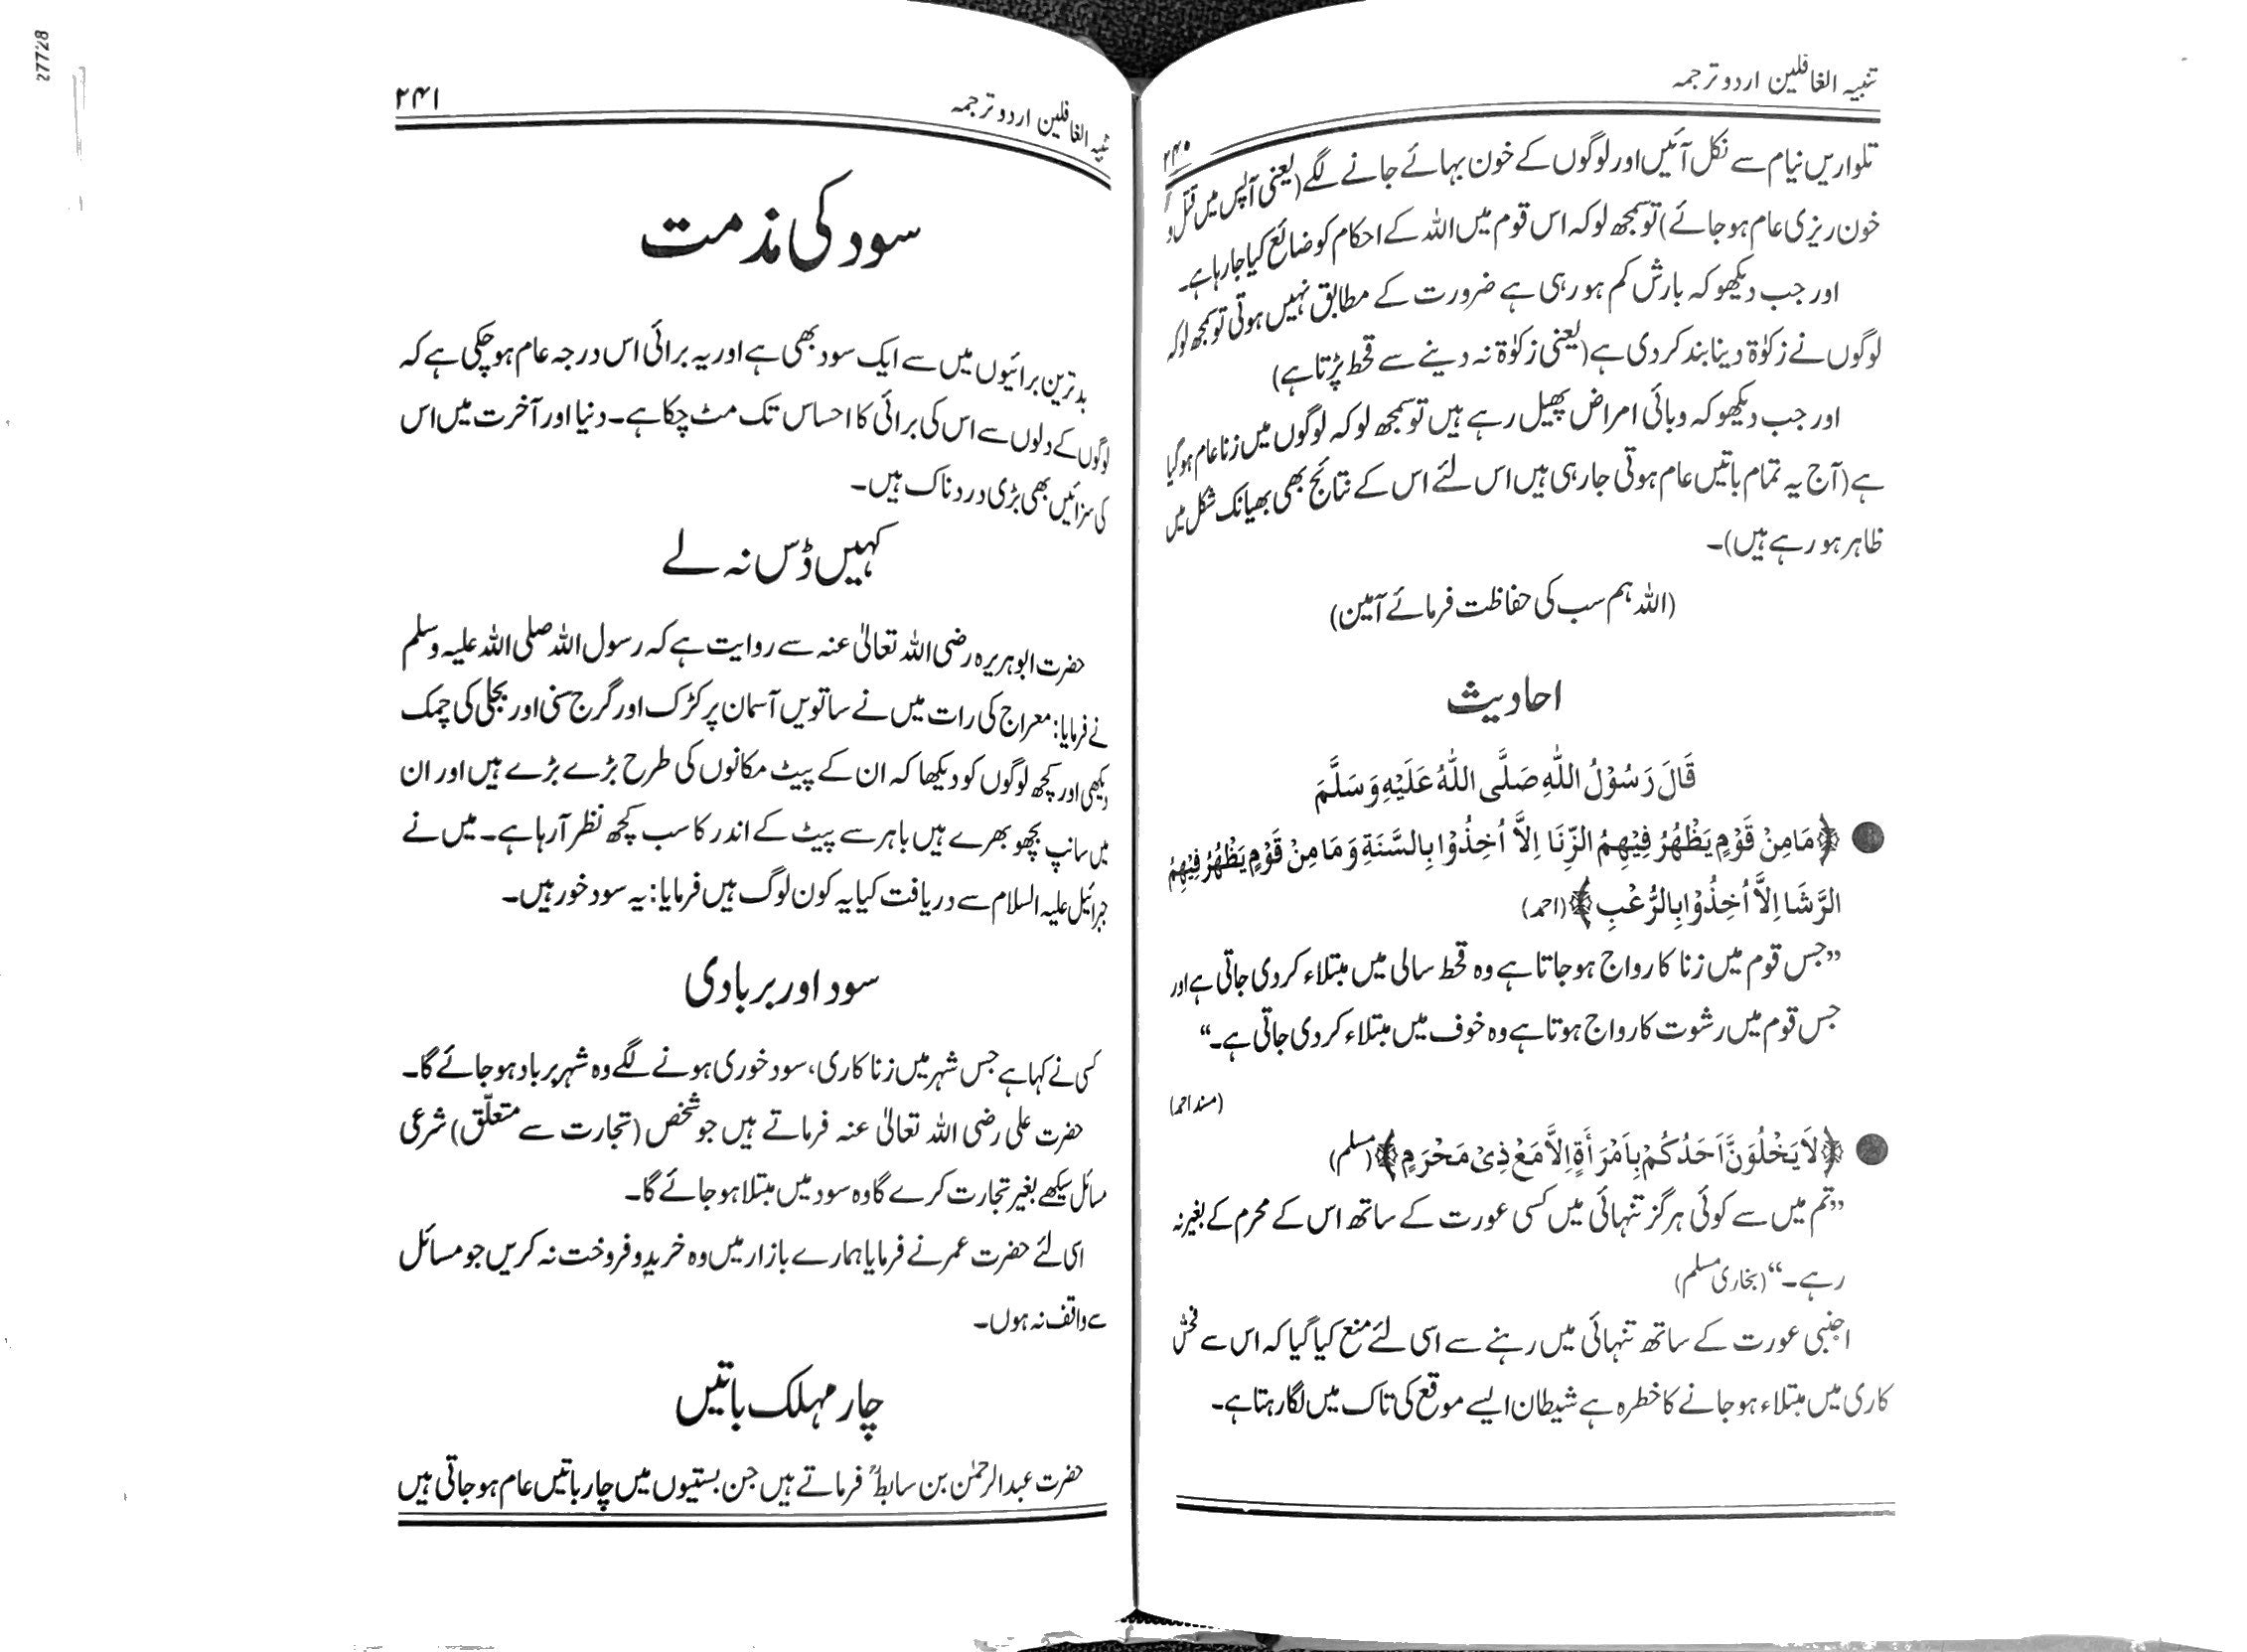 تنبیہ الغافلین اردو ترجمہ
۲۴۰
تلواریں نیام سے نکل آئیں اور لوگوں کے خون بہائے جانے لگے (یعنی آپس میں قتل و
خون ریزی عام ہو جائے) تو سمجھ لو کہ اس قوم میں اللہ کے احکام کو ضائع کیا جا رہا ہے۔
اور جب دیکھو کہ بارش کم ہو رہی ہے ضرورت کے مطابق نہیں ہوتی تو سمجھ لو کہ
لوگوں نے زکوٰۃ دینا بند کر دی ہے (یعنی زکوٰۃ نہ دینے سے قحط پڑتا ہے)
اور جب دیکھو کہ وبائی امراض پھیل رہے ہیں تو سمجھ لو کہ لوگوں میں زنا عام ہو گیا
ہے (آج یہ تمام باتیں عام ہوتی جا رہی ہیں اس لئے اس کے نتائج بھی بھیانک شکل میں
ظاہر ہو رہے ہیں)۔
(اللہ ہم سب کی حفاظت فرمائے آمین)
احادیث
قَالَ رَسُوْلُ اللّٰهِ صَلَّى اللّٰهُ عَلَيْهِ وَسَلَّمَ
● ﴿مَا مِنْ قَوْمٍ يَظْهَرُ فِيْهِمُ الزِّنَا اِلَّا اُخِذُوْا بِالسَّنَةِ وَمَا مِنْ قَوْمٍ يَظْهَرُ فِيْهِمُ
الرَّشَا اِلَّا اُخِذُوْا بِالرُّعْبِ﴾ (احمد)
”جس قوم میں زنا کا رواج ہو جاتا ہے وہ قحط سالی میں مبتلاء کر دی جاتی ہے اور
جس قوم میں رشوت کا رواج ہوتا ہے وہ خوف میں مبتلاء کر دی جاتی ہے۔“
(مسند احمد)
● ﴿لَا يَخْلُوَنَّ اَحَدُكُمْ بِاَمْرَأَةٍ اِلَّا مَعْ ذِىْ مَحْرَمٍ﴾ (مسلم)
”تم میں سے کوئی ہرگز تنہائی میں کسی عورت کے ساتھ اس کے محرم کے بغیر نہ
رہے۔“ (بخاری مسلم)
اجنبی عورت کے ساتھ تنہائی میں رہنے سے اسی لئے منع کیا گیا کہ اس سے فحش
کاری میں مبتلاء ہو جانے کا خطرہ ہے شیطان ایسے موقع کی تاک میں لگا رہتا ہے۔
تنبیہ الغافلین اردو ترجمہ
۲۴۱
سود کی مذمت
بدترین برائیوں میں سے ایک سود بھی ہے اور یہ برائی اس درجہ عام ہو چکی ہے کہ
لوگوں کے دلوں سے اس کی برائی کا احساس تک مٹ چکا ہے۔ دنیا اور آخرت میں اس
کی سزائیں بھی بڑی دردناک ہیں۔
کہیں ڈس نہ لے
حضرت ابوہریرہ رضی اللہ تعالیٰ عنہ سے روایت ہے کہ رسول اللہ صلی اللہ علیہ وسلم
نے فرمایا: معراج کی رات میں نے ساتویں آسمان پر کڑک اور گرج سنی اور بجلی کی چمک
دیکھی اور کچھ لوگوں کو دیکھا کہ ان کے پیٹ مکانوں کی طرح بڑے بڑے ہیں اور ان
میں سانپ بچھو بھرے ہیں باہر سے پیٹ کے اندر کا سب کچھ نظر آ رہا ہے۔ میں نے
جبرائیل علیہ السلام سے دریافت کیا یہ کون لوگ ہیں فرمایا: یہ سود خور ہیں۔
سود اور بربادی
کسی نے کہا ہے جس شہر میں زنا کاری، سود خوری ہونے لگے وہ شہر برباد ہو جائے گا۔
حضرت علی رضی اللہ تعالیٰ عنہ فرماتے ہیں جو شخص (تجارت سے متعلّق) شرعی
مسائل سیکھے بغیر تجارت کرے گا وہ سود میں مبتلا ہو جائے گا۔
اسی لئے حضرت عمر نے فرمایا ہمارے بازار میں وہ خرید و فروخت نہ کریں جو مسائل
سے واقف نہ ہوں۔
چار مہلک باتیں
حضرت عبدالرحمٰن بن سابطؒ فرماتے ہیں جن بستیوں میں چار باتیں عام ہو جاتی ہیں